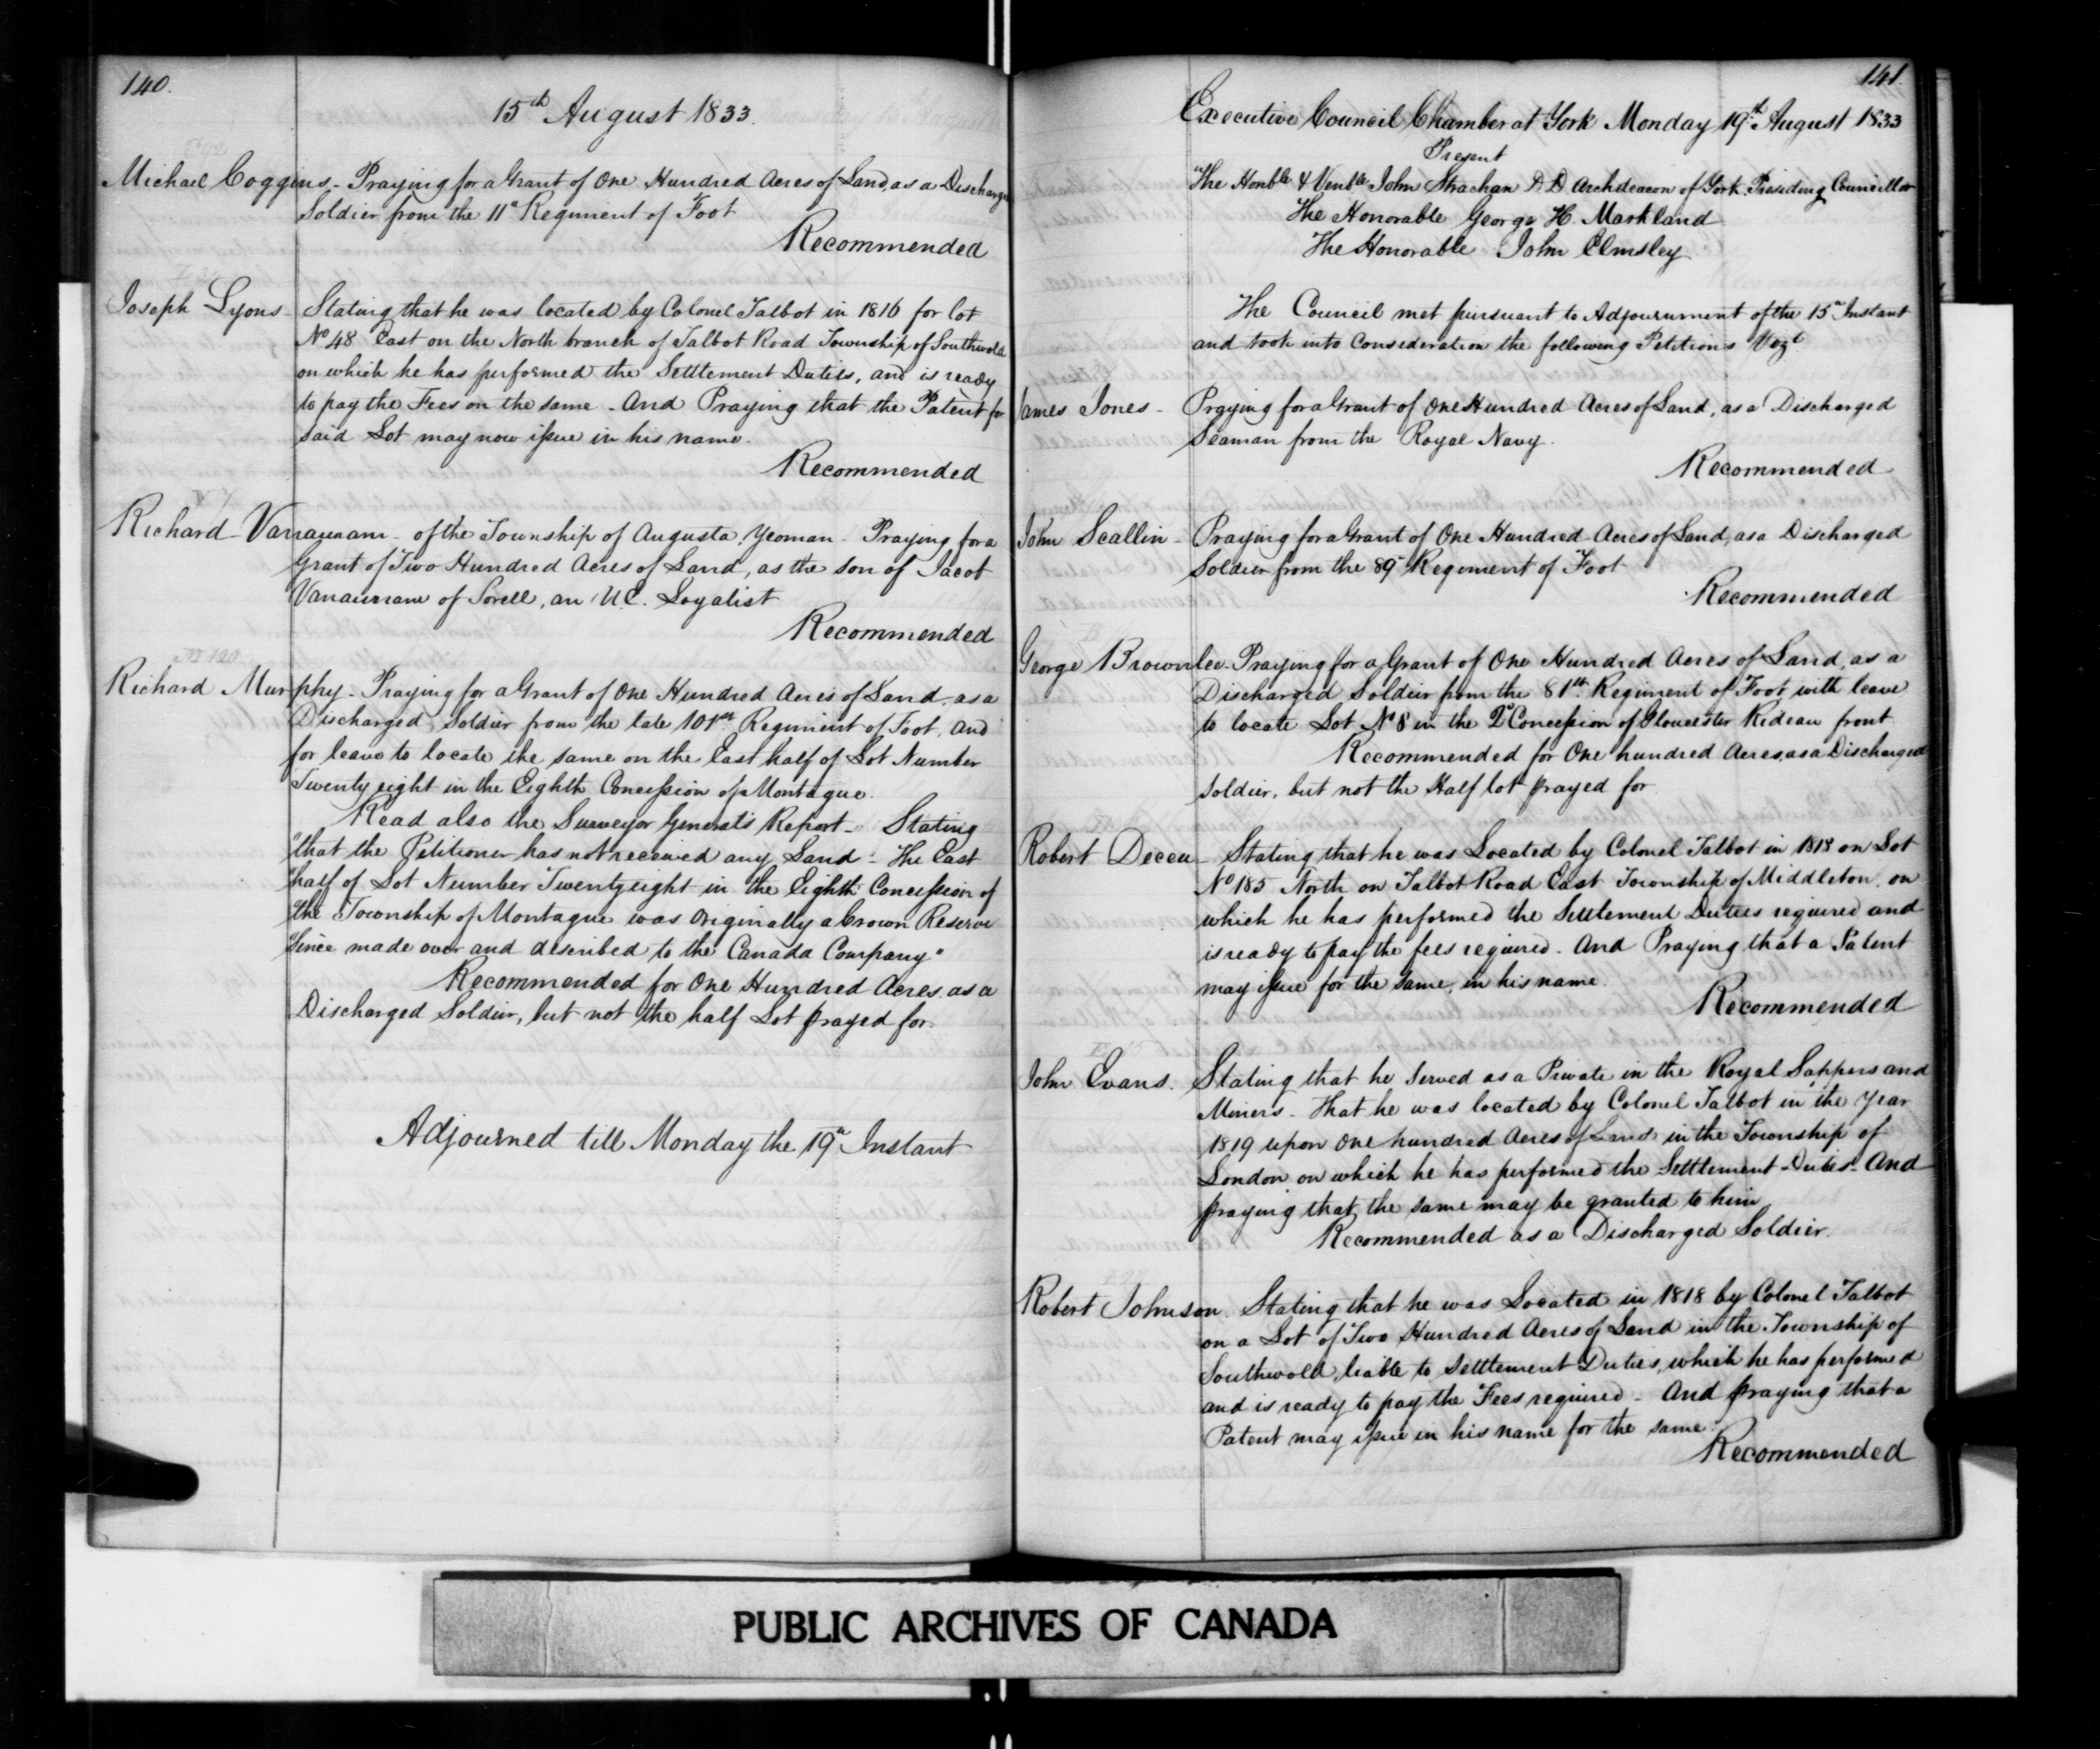 140.
15th August 1833.
Michael Coggins - Praying for a Grant of One Hundred Acres of Land as a Discharge
Soldier from the 11th Regiment of Foot
Recommended
Joseph Lyons - Stating that he was located by Colonel Talbot in 1816 for lot
No 48 East on the North branch of Talbot Road Township of Southwold
on which he has performed the Settlement Duties, and is ready
to pay the Fees on the same - And Praying that the Patent for
said Lot may now issue in his name.
Recommended
Richard - of the Township of Augusta, Yeoman - Praying for a
Grant of Two Hundred Acres of Land, as the son of Jacob
of Sorell, an U.E. Loyalist
Recommended
Richard Murphy - Praying for a Grant of One Hundred Acres of Land, as a
Discharged Soldier from the late 101st Regiment of Foot, and
for leave to locate the same on the East half of Lot Number
Twenty eight in the Eighth Concession of Montague.
Read also the Surveyor General's Report - Stating
"that the Petitioner has not received any Land - The East
"half of Lot Number Twenty eight in the Eighth Concession of
"the Township of Montague was originally a Crown Reserve
"Since made over and described to the Canada Company"
Recommended for One Hundred Acres, as a
Discharged Soldier, but not the half Lot prayed for.
Adjourned till Monday the 19th Instant
141.
Executive Council Chamber at York Monday 19th August 1833
Present
The Honble & Venble John Strachan D.D. Archdeacon of York Presiding Councillor
The Honorable George H. Markland
The Honorable John Elmsley
The Council met pursuant to Adjournment of the 15th Instant
and took into Consideration the following Petitions Vizt
James Jones - Praying for a Grant of One Hundred Acres of Land, as a Discharged
Seaman from the Royal Navy.
Recommended
John Scallin - Praying for a Grant of One Hundred Acres of Land, as a Discharged
Soldier from the 89th Regiment of Foot
Recommended
George Brownlee - Praying for a Grant of One Hundred Acres of Land, as a
Discharged Soldier from the 81st Regiment of Foot, with leave
to locate Lot No 8 in the 2d Concession of Gloucester Rideau front
Recommended for One hundred Acres, as a Discharged
Soldier, but not the Half lot prayed for.
Robert Decew - Stating that he was Located by Colonel Talbot in 1818 on Lot
No 185 North on Talbot Road East Township of Middleton, on
which he has performed the Settlement Duties required and
is ready to pay the fees required - And Praying that a Patent
may issue for the same, in his name.
Recommended
John Evans. Stating that he Served as a Private in the Royal Sappers and
Miners - That he was located by Colonel Talbot in the Year
1819 upon One hundred Acres of Land in the Township of
London on which he has performed the Settlement Duties - And
praying that the same may be granted to him
Recommended as a Discharged Soldier.
Robert Johnson. Stating that he was Located in 1818 by Colonel Talbot
on a Lot of Two Hundred Acres of Land in the Township of
Southwold, liable to Settlement Duties, which he has performed
and is ready to pay the Fees required - And praying that a
Patent may issue in his name for the same.
Recommended
PUBLIC ARCHIVES OF CANADA